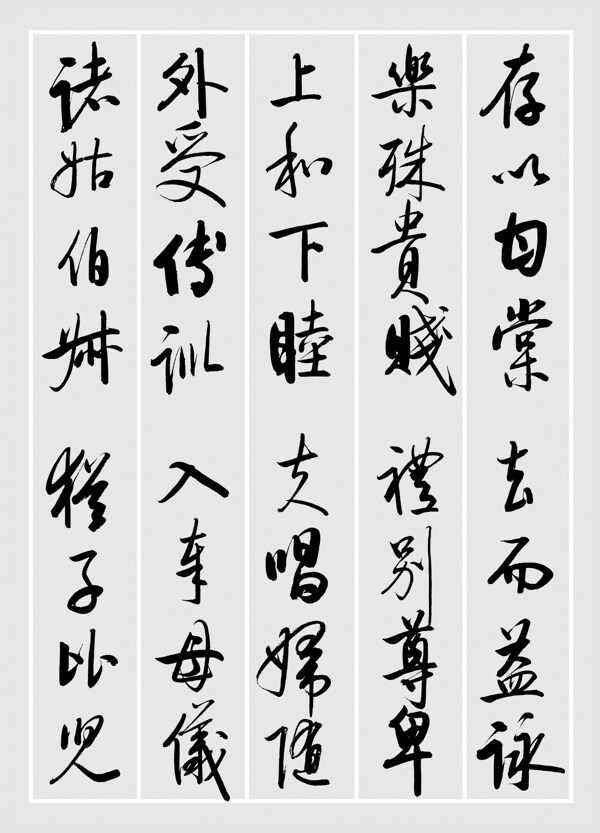 存以甘棠 去而益詠
樂殊貴賤 禮別尊卑
上和下睦 夫唱婦隨
外受傅訓 入奉母儀
諸姑伯叔 猶子比兒